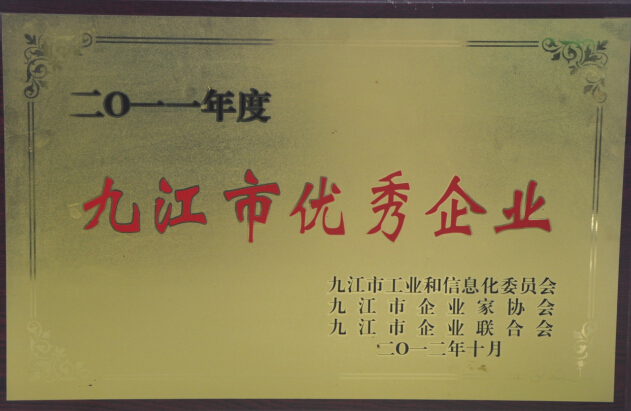 二O一一年度
九江市优秀企业
九江市工业和信息化委员会
九江市企业家协会
九江市企业联合会
二O一二年十月